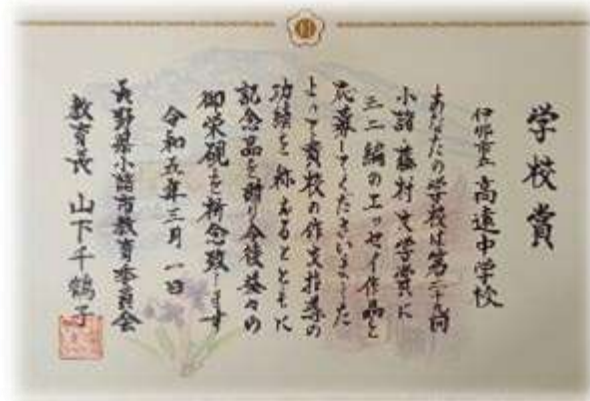 学校賞
伊那市立 高遠中学校
あなたの学校は第二十九回
小諸・藤村文学賞に
三二編のエッセイ作品を
応募してくださいました
よって貴校の作文指導の
功績を称えるとともに
記念品を贈り今後益々の
御栄を祈念致します
令和五年三月一日
長野県小諸市教育委員会
教育長 山下千鶴子